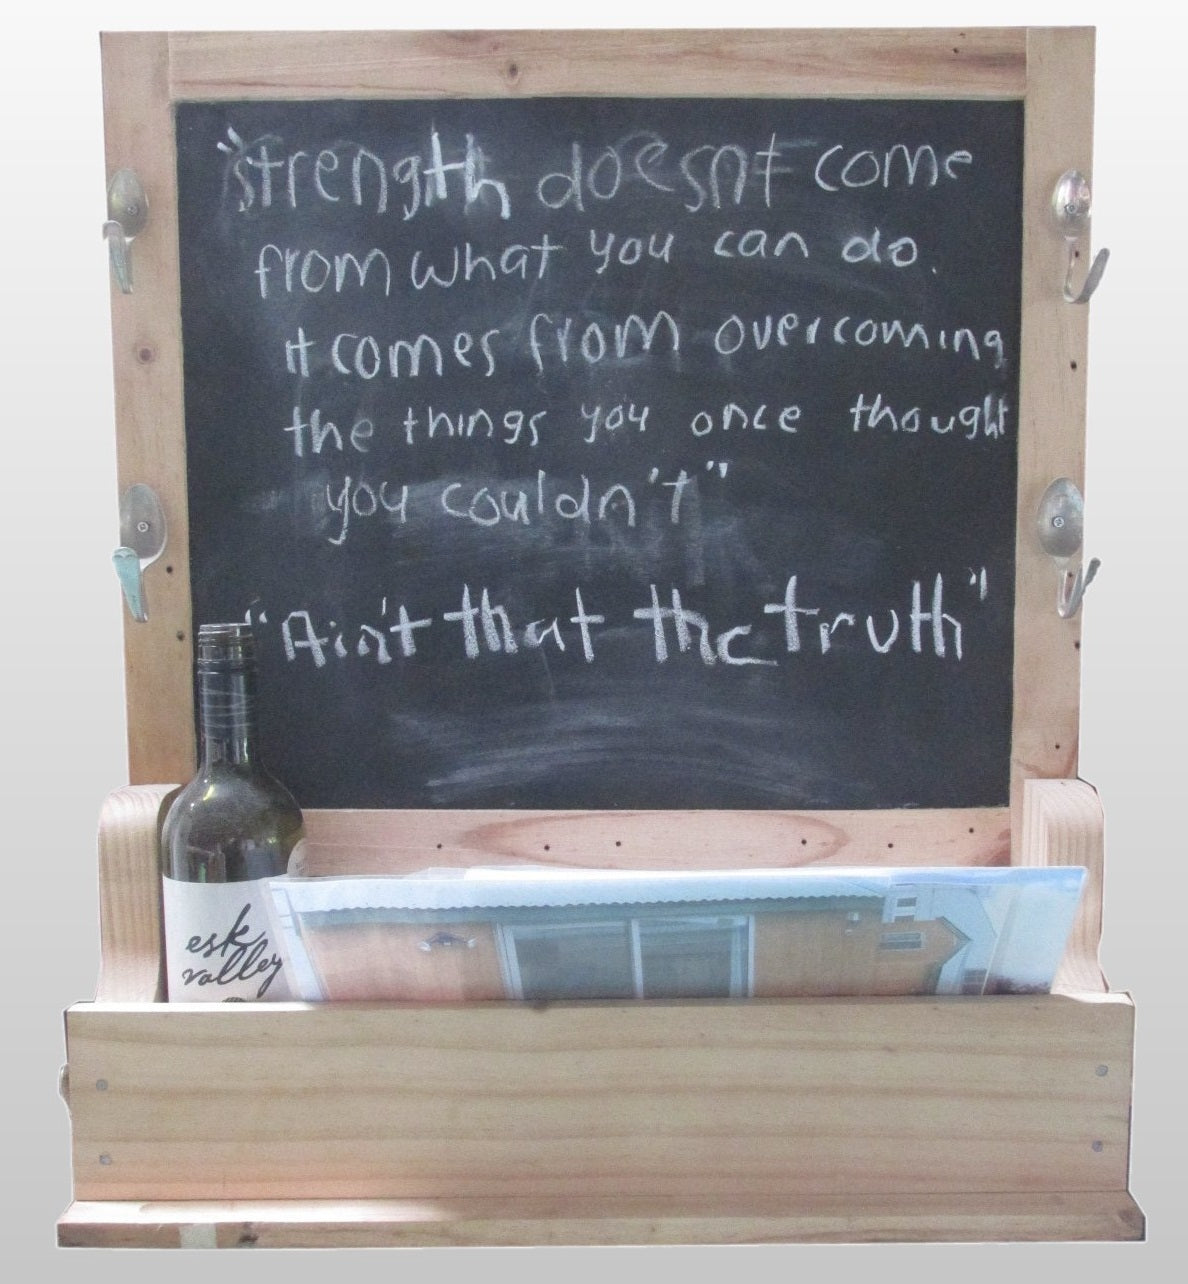 "strength doesnt come
from what you can do.
it comes from overcoming
the things you once thought
you couldn't"
"Ain't that the truth"
esk
valley